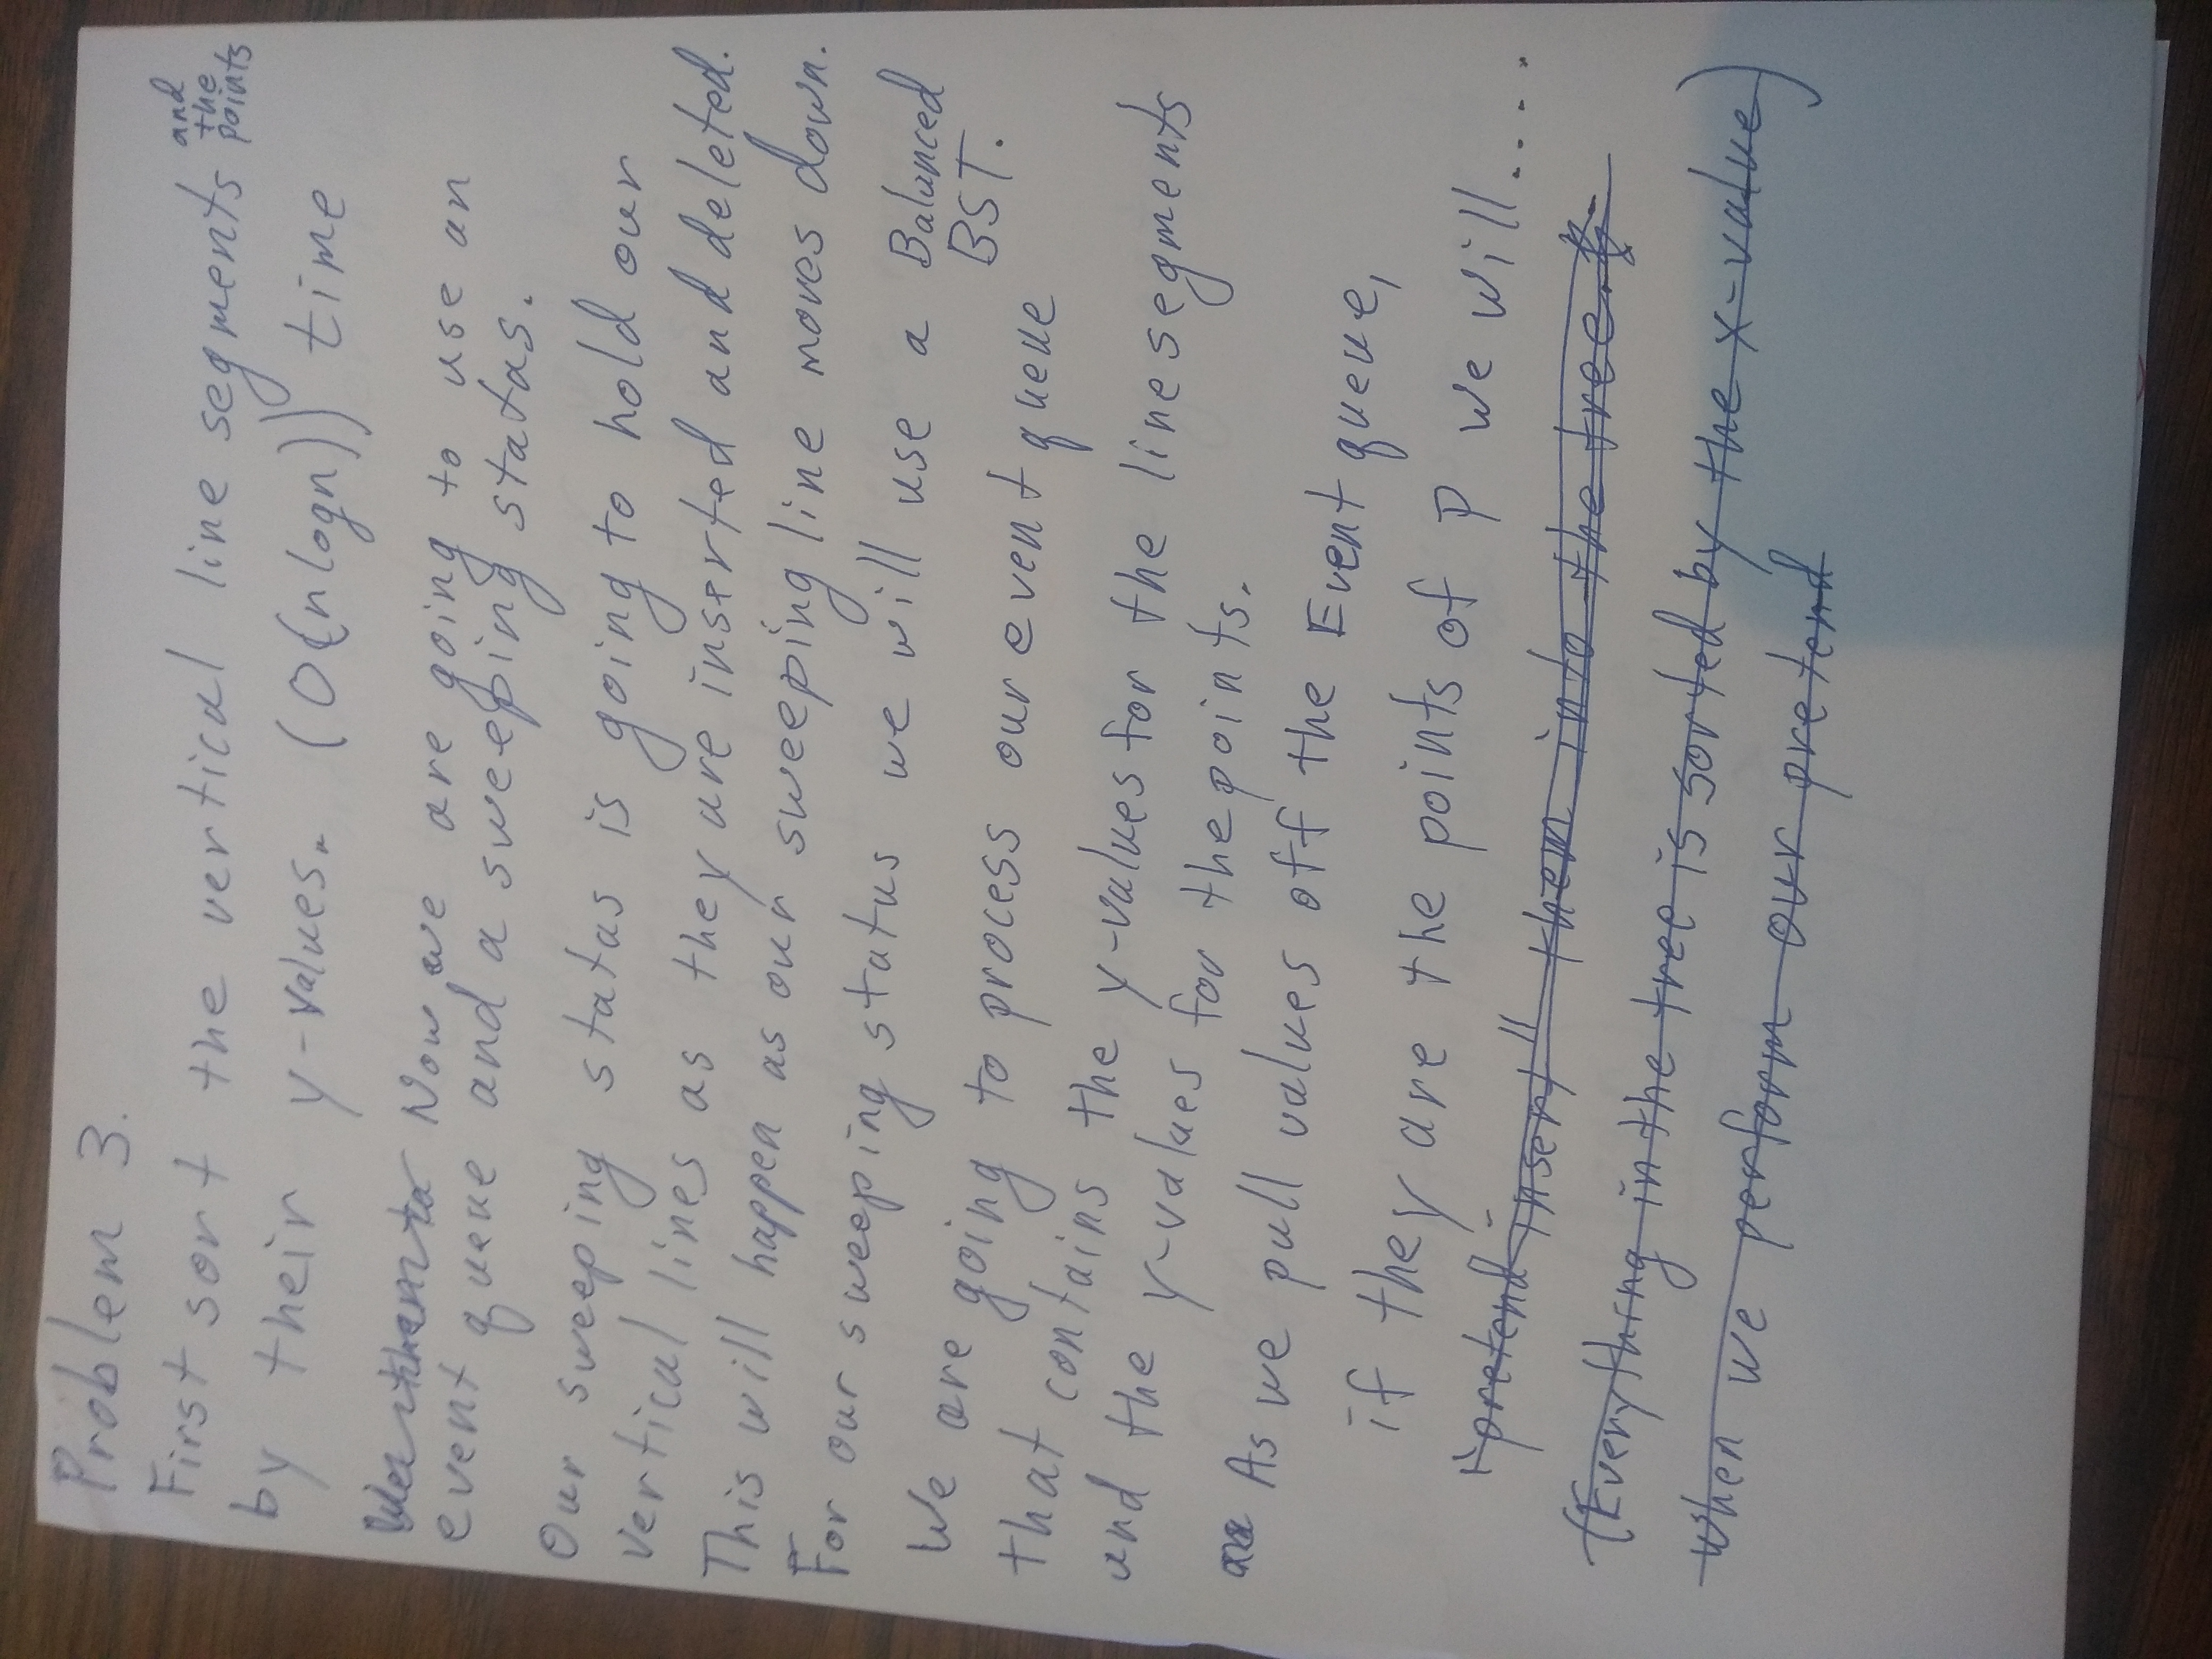 Problem 3.
First sort the vertical line segments and the points
by their y-values. (O(nlogn)) time
Now we are going to use an
event queue and a sweeping status.
Our sweeping status is going to hold our
vertical lines as they are inserted and deleted.
This will happen as our sweeping line moves down.
For our sweeping status we will use a Balanced
BST.
We are going to process our event queue
that contains the y-values for the line segments
and the y-values for the points.
As we pull values off the Event queue,
if they are the points of P we will.....
"pretend insert" them into the tree.
(Everything in the tree is sorted by the x-value)
When we perform our pretend